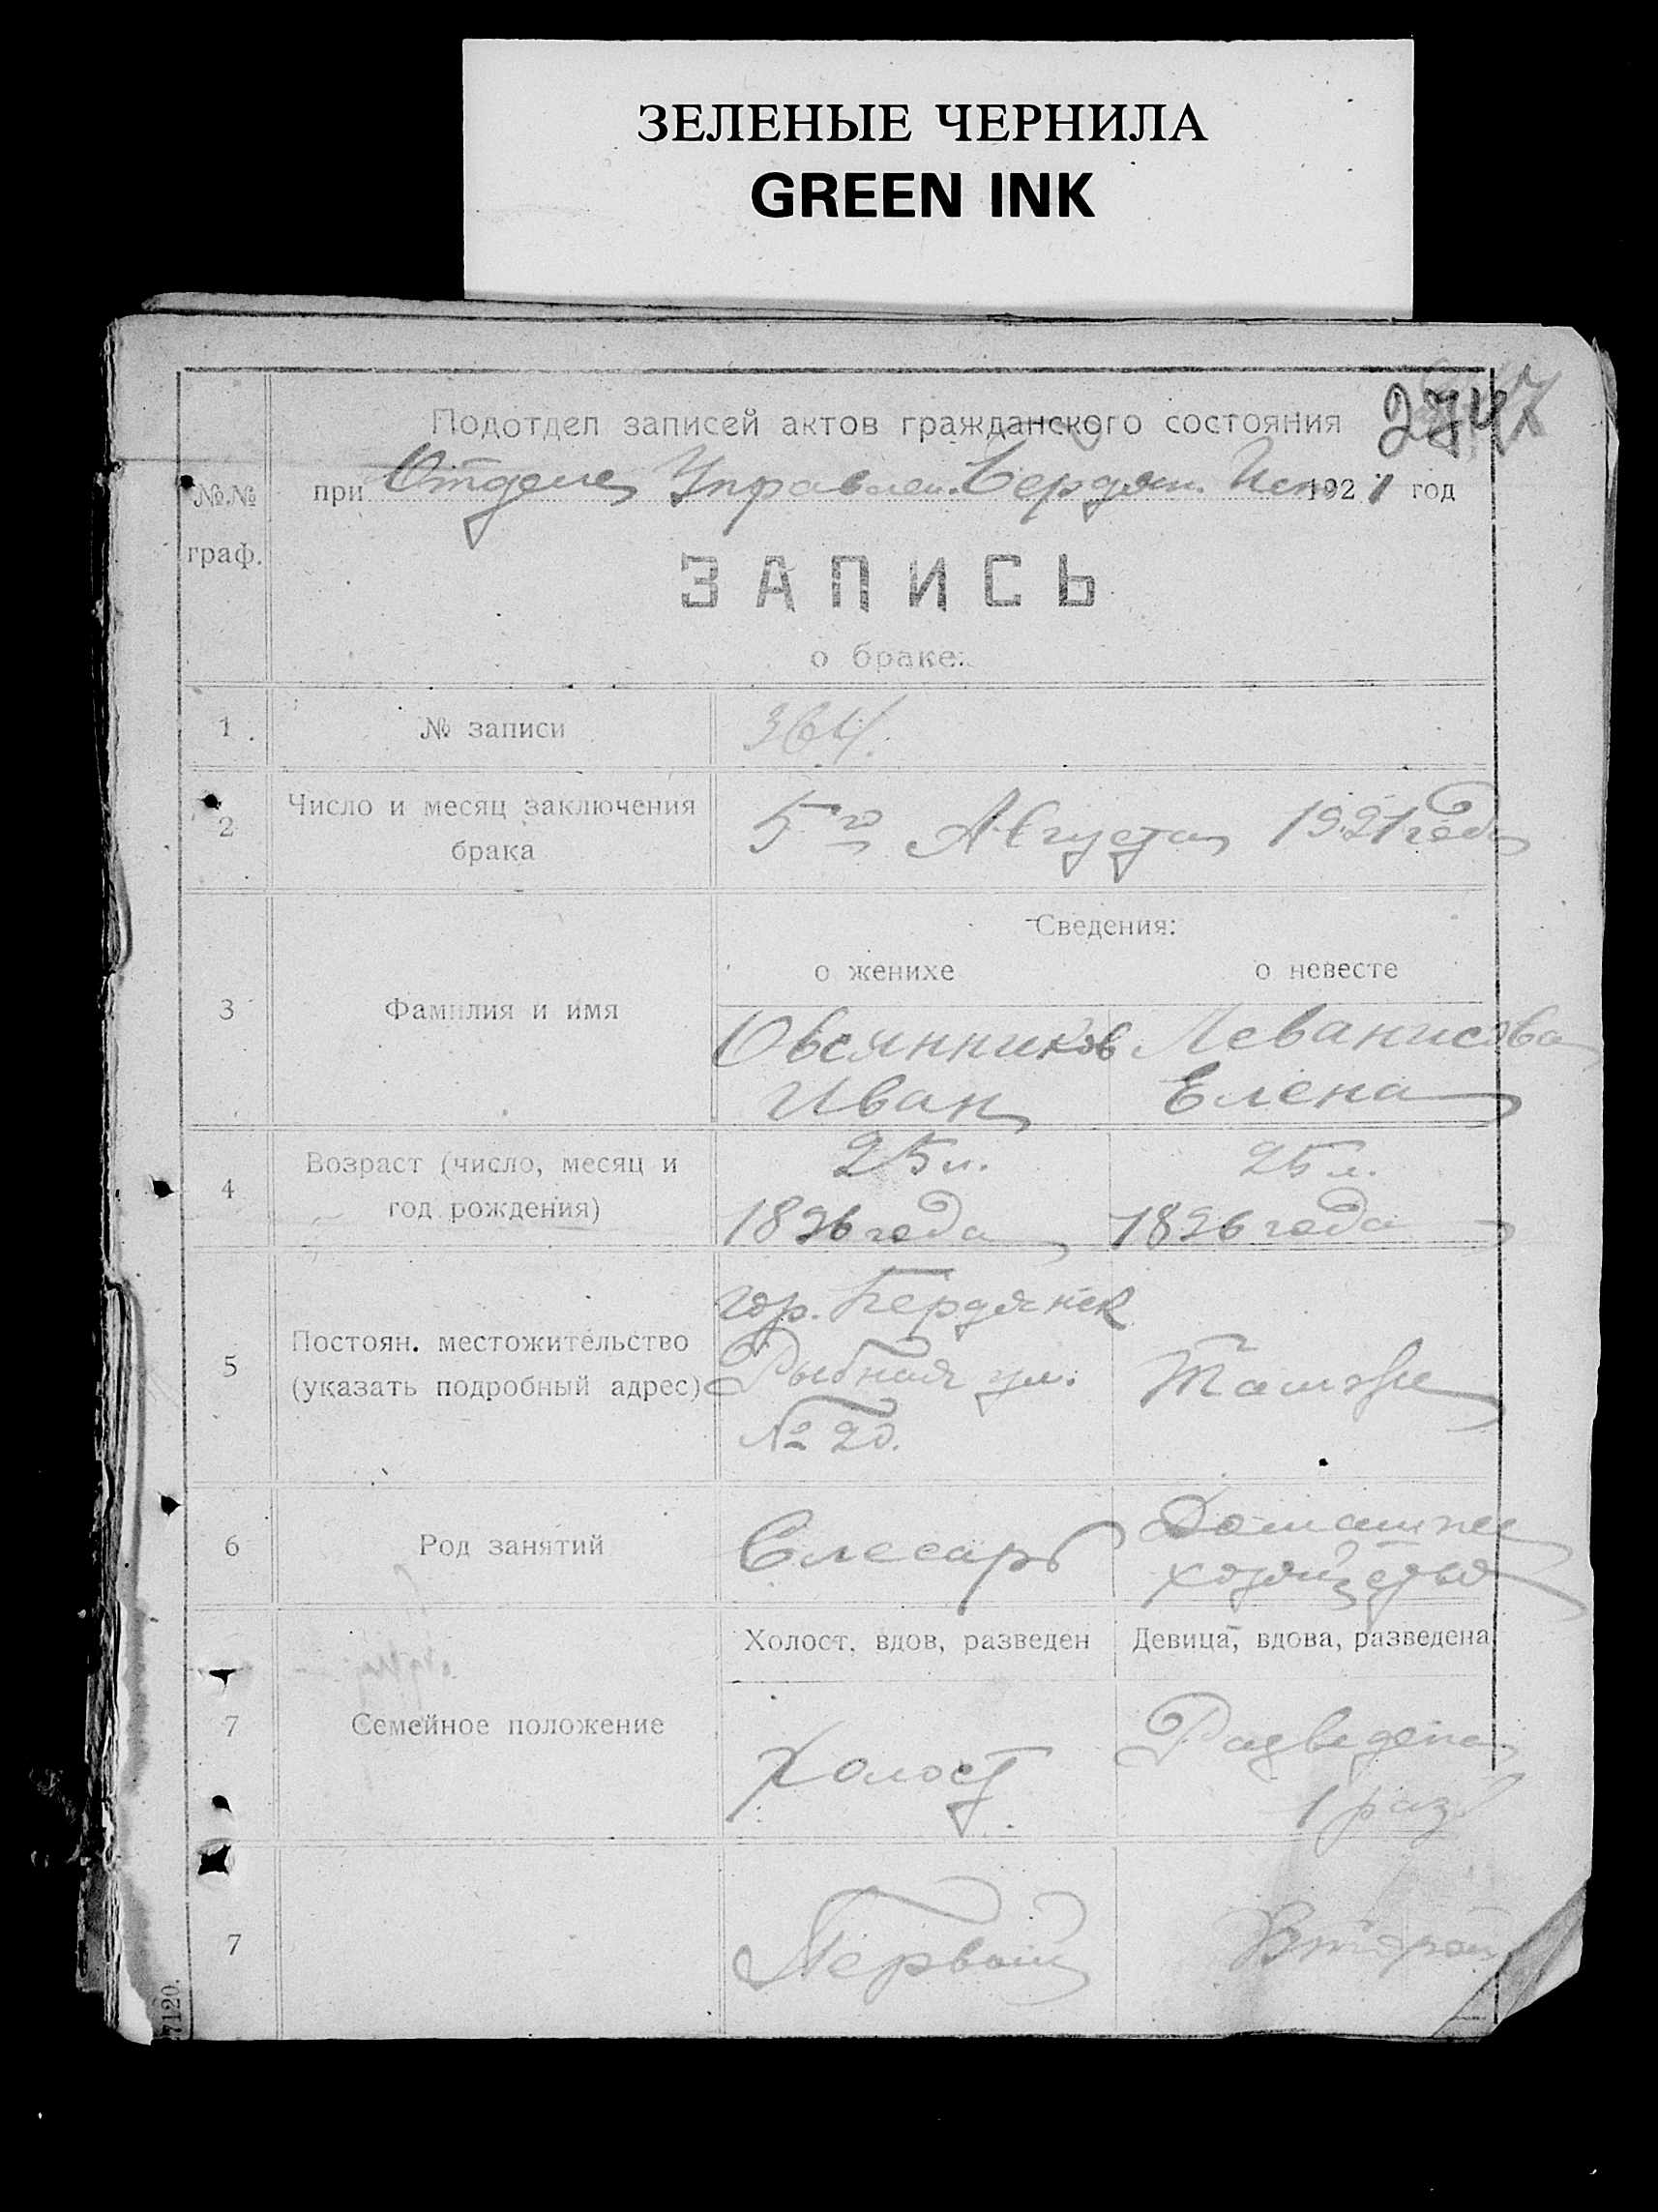 ЗЕЛЕНЫЕ ЧЕРНИЛА
GREEN INK
274
Подотдел записей актов гражданского состояния
№№ граф.
при Отделе Управлен. Бердян. Исп. 1921 год
ЗАПИСЬ
о браке:
1 № записи 364.
2 Число и месяц заключения брака
5го Августа 1921 года
Сведения:
о женихе о невесте
3 Фамилия и имя
Овсянников Леванисова
Иван Елена
4 Возраст (число, месяц и год рождения)
25 л. 25 л.
1896 года 1896 года
5 Постоян. местожительство (указать подробный адрес)
гор. Бердянск
Рыбная ул. Там же
№ 20.
6 Род занятий
Слесарь Домашнее
хозяйство
Холост, вдов, разведен Девица, вдова, разведена
7 Семейное положение
Холост Разведена
1 раз
7 Первый Второй
7120.